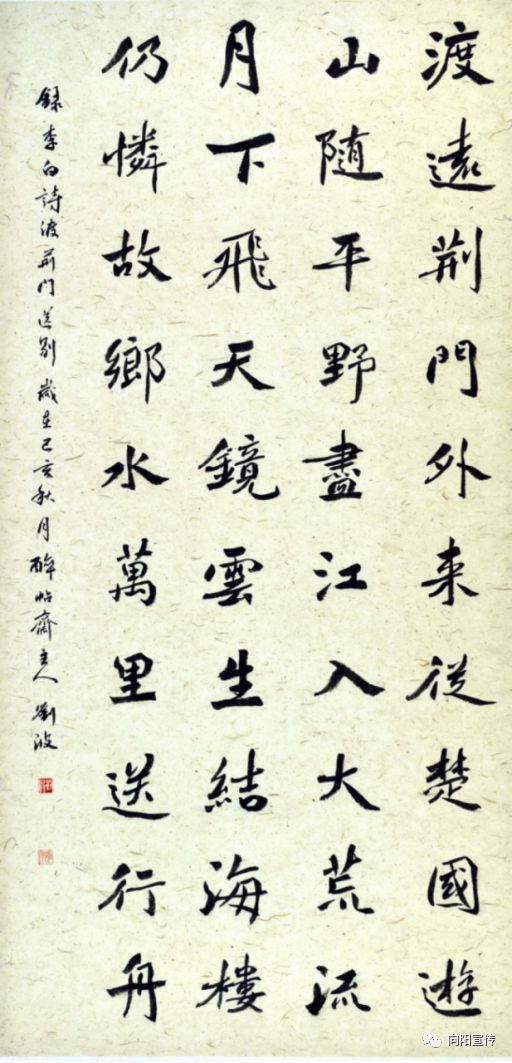 渡遠荆門外来從楚國遊
山随平野盡江入大荒流
月下飛天鏡雲生結海樓
仍憐故鄉水萬里送行舟
録李白詩渡荊門送别歲在己亥秋月醉帖齋主人劉波
向阳宣传